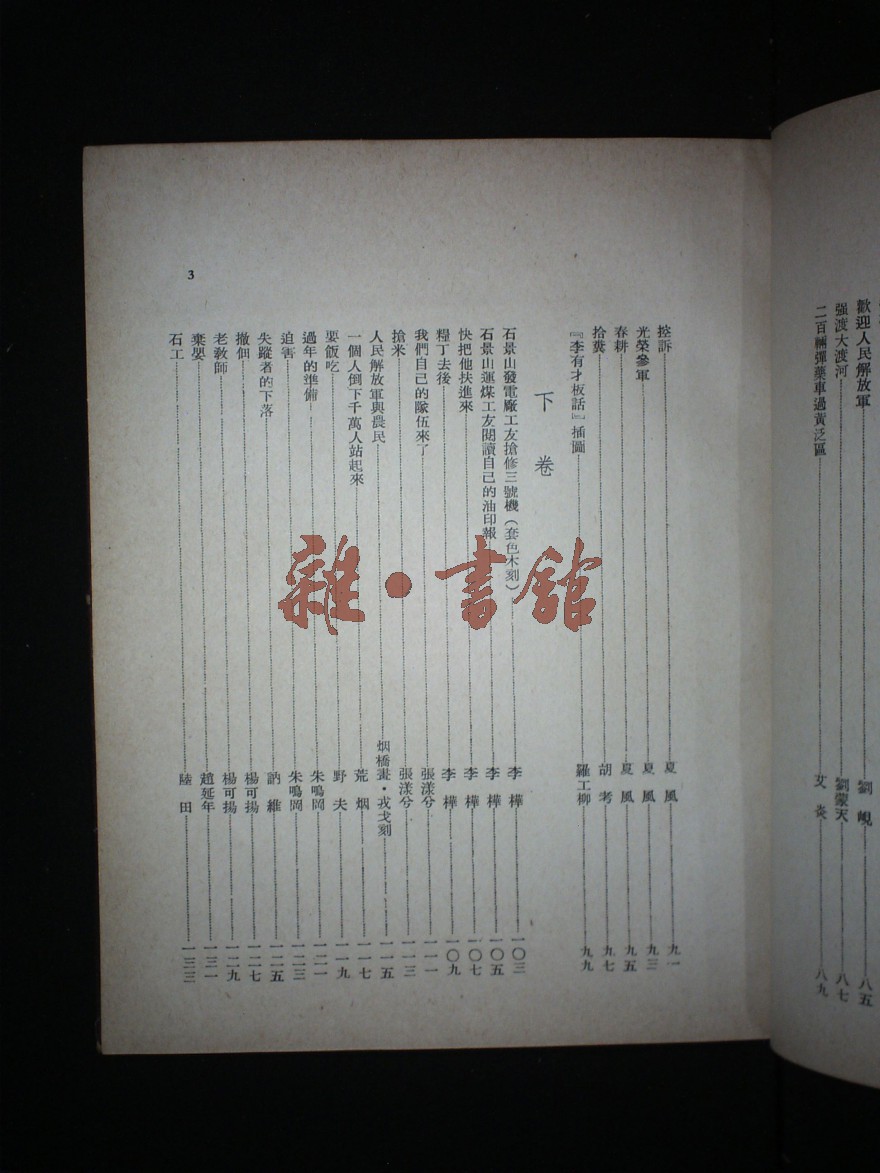 歡迎人民解放軍 劉峴 八五
强渡大渡河 劉蒙天 八七
二百輛彈藥車過黃泛區 艾炎 八九
控訴 夏風 九一
光榮參軍 夏風 九三
春耕 夏風 九五
拾糞 胡考 九七
『李有才板話』插圖 羅工柳 九九
下卷
石景山發電廠工友搶修三號機(套色木刻) 李樺 一〇三
石景山運煤工友閱讀自己的油印報 李樺 一〇五
快把他扶進來 李樺 一〇七
糧丁去後 李樺 一〇九
我們自己的隊伍來了 張漾兮 一一一
搶米 張漾兮 一一三
人民解放軍與農民 烟橋畫·戎戈刻 一一五
一個人倒下千萬人站起來 荒烟 一一七
要飯吃 野夫 一一九
過年的準備 朱鳴岡 一二一
迫害 朱鳴岡 一二三
失蹤者的下落 訥維 一二五
撤佃 楊可揚 一二七
老教師 楊可揚 一二九
棄嬰 趙延年 一三一
石工 陸田 一三三
3
雜·書館